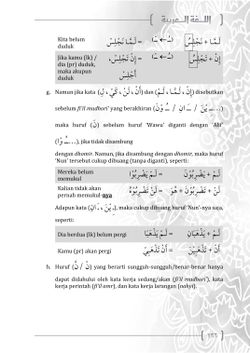 اللـغة العـربية
Kita belum duduk
لَـمَّا نَجْلِسْ = (سُ ← سْ) لَـمَّا + نَجْلِسُ
Jika kamu (lk) / dia (pr) duduk, maka akupun duduk
إِنْ تَجْلِسْ، أَجْلِسْ = (سُ ← سْ) إِنْ + تَجْلِسُ،
g. Namun jika kata (أَنْ ، لَنْ ، كَيْ ، لِـ) dan (لَمْ ، لَـمَّا ، إِنْ) disebutkan
sebelum fi'il mudhori' yang berakhiran
maka huruf (نَ) sebelum huruf 'Wawu' diganti dengan 'Alif'
jika tidak disambung
dengan dhomir. Namun, jika disambung dengan dhomir, maka huruf
'Nun' tersebut cukup dibuang (tanpa diganti), seperti:
Mereka belum memukul
لَمْ يَضْرِبُوْا = لَمْ + يَضْرِبُوْنَ
Kalian tidak akan pernah memukul-nya
لَنْ تَضْرِبُوْهُ = لَنْ + تَضْرِبُوْنَ + هُوَ
Adapun kata maka cukup dibuang huruf 'Nun'-nya saja,
seperti:
Dia berdua (lk) belum pergi
لَمْ يَذْهَبَا = لَمْ + يَذْهَبَانِ
Kamu (pr) akan pergi
أَنْ تَذْهَبِيْ = أَنْ + تَذْهَبِيْنَ
h. Huruf (نْ / نَّ) yang berarti sungguh-sungguh/benar-benar hanya
dapat didahului oleh kata kerja sedang/akan (fi'il mudhori'), kata
kerja perintah (fi'il amr), dan kata kerja larangan (nahyi).